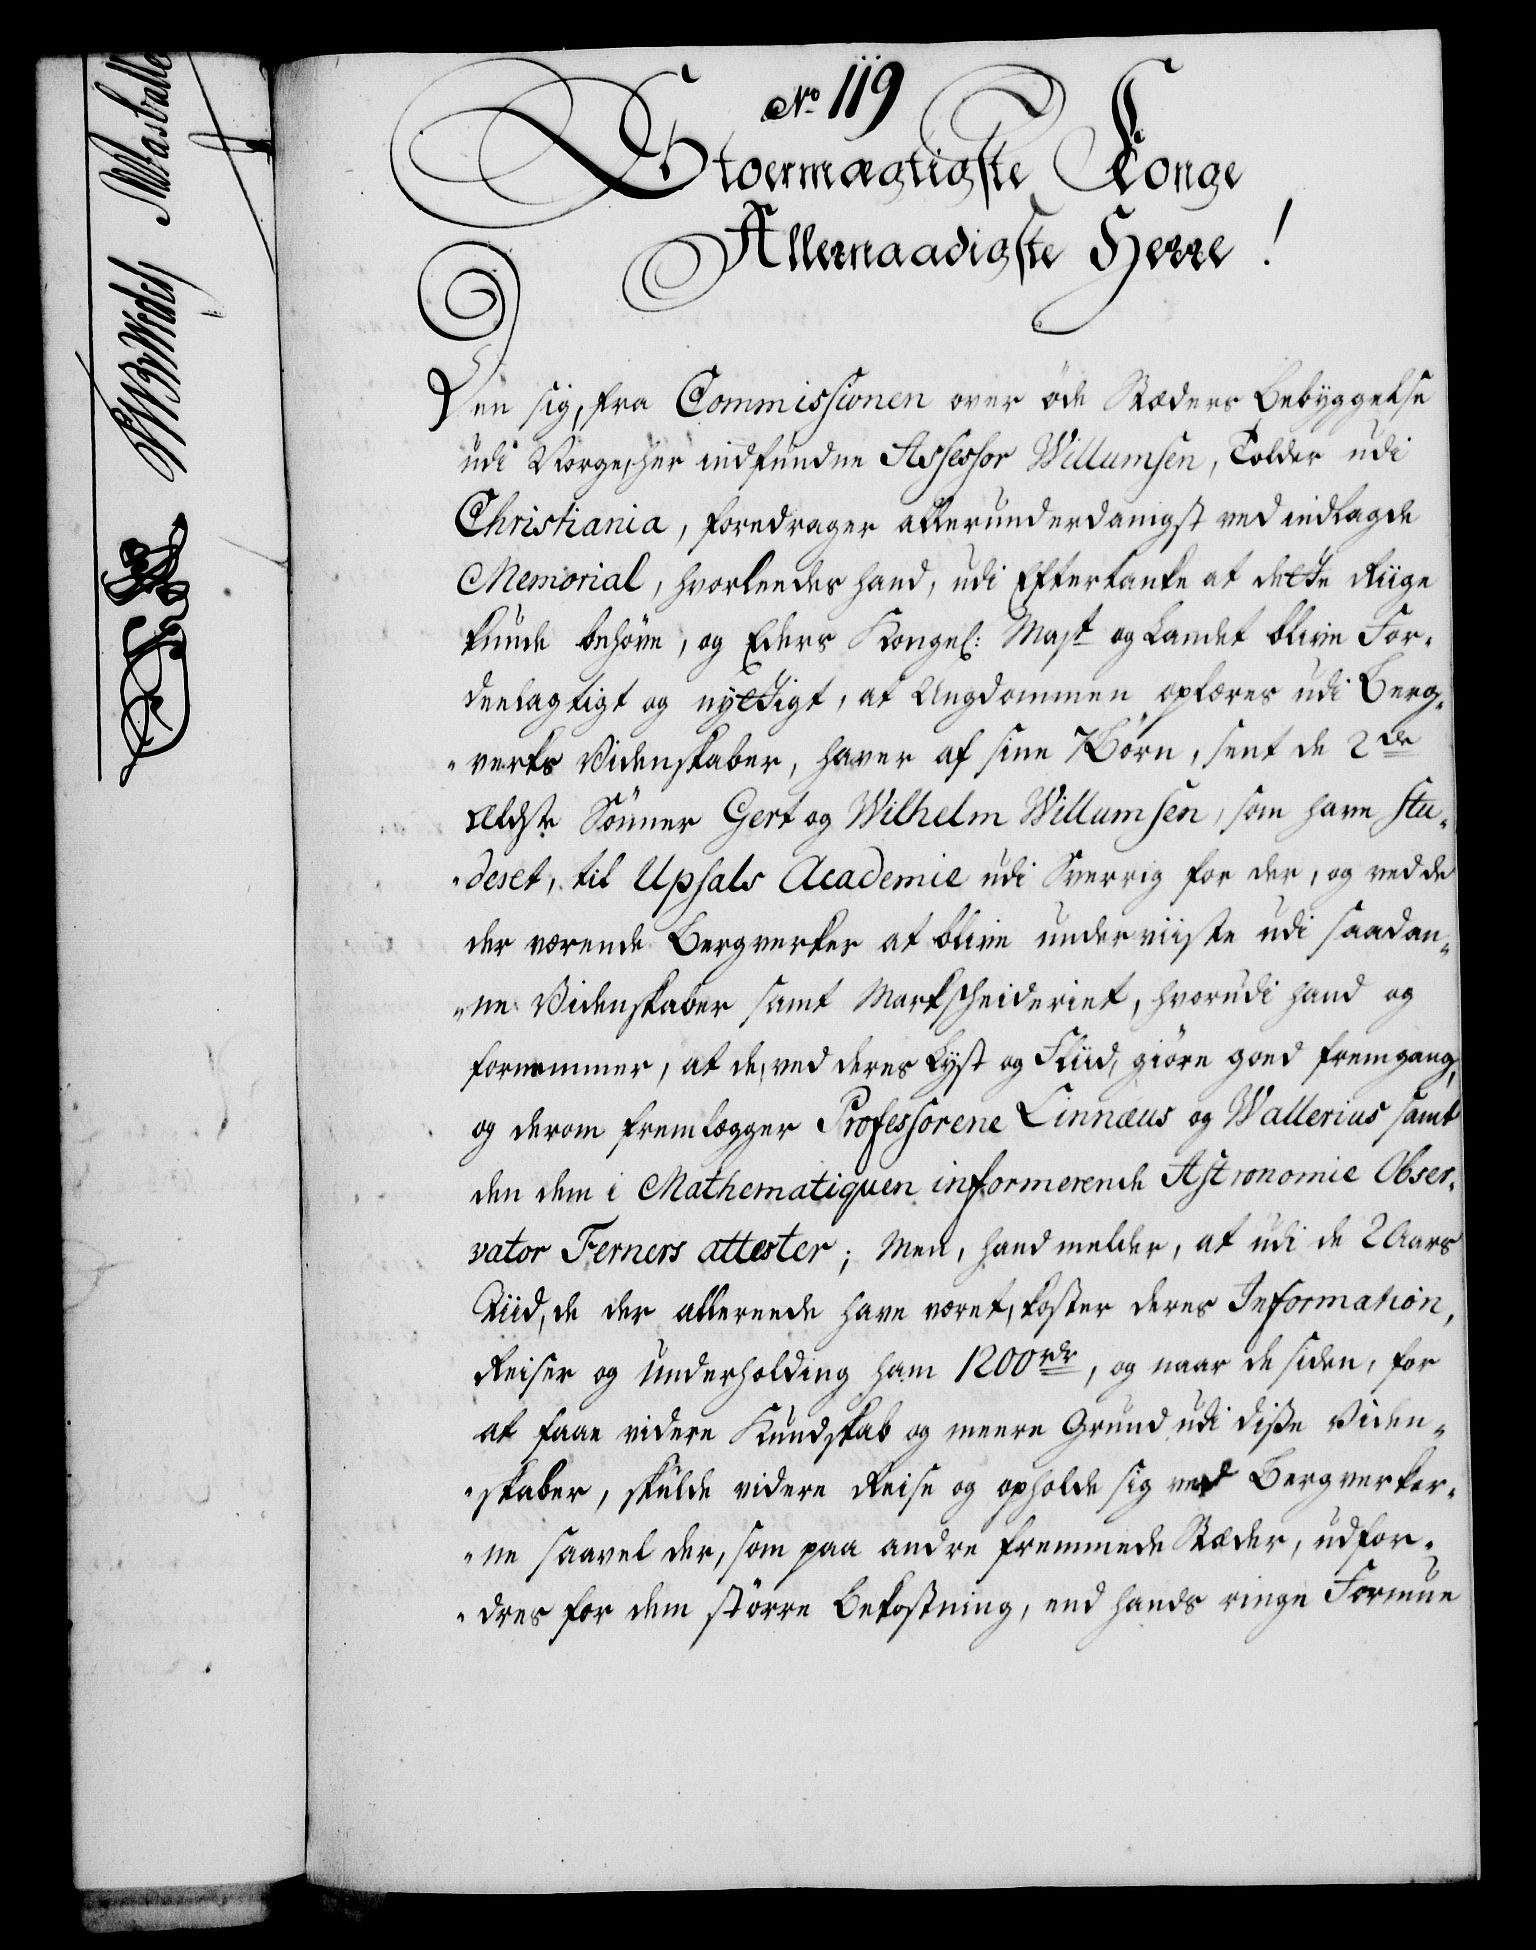 No 119
Stoermægtigste Konge
Allernaadigste Herre!
Den sig, fra Commissionen over öde Stæders Bebyggelse
udi Norge, her indfundne Assessor Willumsen, Tolder udi
Christiania, foredrager allerunderdanigst ved indlagde
Memorial, hvorledes hand, udi Eftertanke at dette Riige
kunde behöve, og Eders Kongel: Mayst og Landet blive For-
deelagtigt og nyttigt, at Ungdommen oplæres udi Berg-
-verks Videnskaber, haver af sine 7 Börn, sent de 2de
ældste Sönner Gert og Wilhelm Willumsen, som have stu-
-deret, til Upsals Academie udi Sverrig for der, og ved de
der værende Bergverker at blive underviiste udi saadan-
-ne Videnskaber samt Markscheideriet, hvorudi hand og
fornemmer, at de, ved deres Lyst og Fliid, giöre goed fremgang,
og derom fremlægger Professorene Linnæus og Wallerius samt
den dem i Mathematiquen informerende Astronomie Obser-
vator Ferners attester; Men, hand melder, at udi de 2 Aars
Tiid, de der allereede have været, koster deres Information,
Reiser og Underholding ham 1200 rdr, og naar de siden, for
at faae videre Kundskab og meere Grund udi disse Viden-
-skaber, skulde videre Reise og opholde sig ved Bergverker-
-ne saavel der, som paa andre fremmede Stæder, udfor-
-dres for dem större Bekostning, end hands ringe Formue